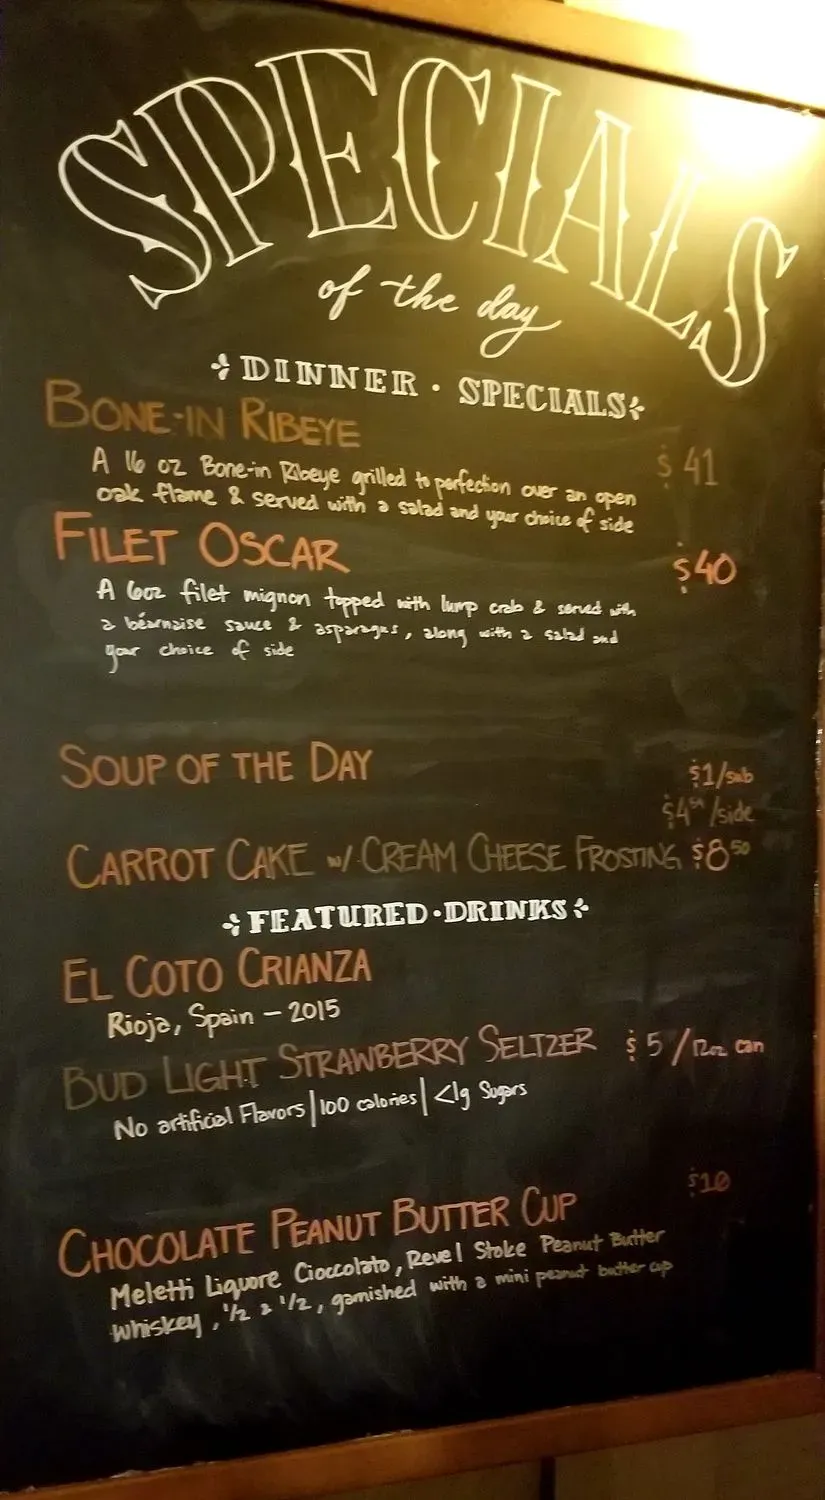 SPECIALS
of the day
DINNER · SPECIALS
BONE-IN RIBEYE
$41
A 16 oz Bone-in Ribeye grilled to perfection over an open
oak flame & served with a salad and your choice of side
FILET OSCAR
$40
A 6oz filet mignon topped with lump crab & served with
a béarnaise sauce & asparagus, along with a salad and
your choice of side
SOUP OF THE DAY
$1/sub
/side
CARROT CAKE w/ CREAM CHEESE FROSTING $8⁵⁰
FEATURED·DRINKS
EL COTO CRIANZA
Rioja, Spain – 2015
BUD LIGHT STRAWBERRY SELTZER $5/12oz can
No artificial Flavors|100 calories|<1g Sugars
$10
CHOCOLATE PEANUT BUTTER CUP
Meletti Liquore Cioccolato, Revel Stoke Peanut Butter
Whiskey, 1/2 & 1/2, garnished with a mini peanut butter cup